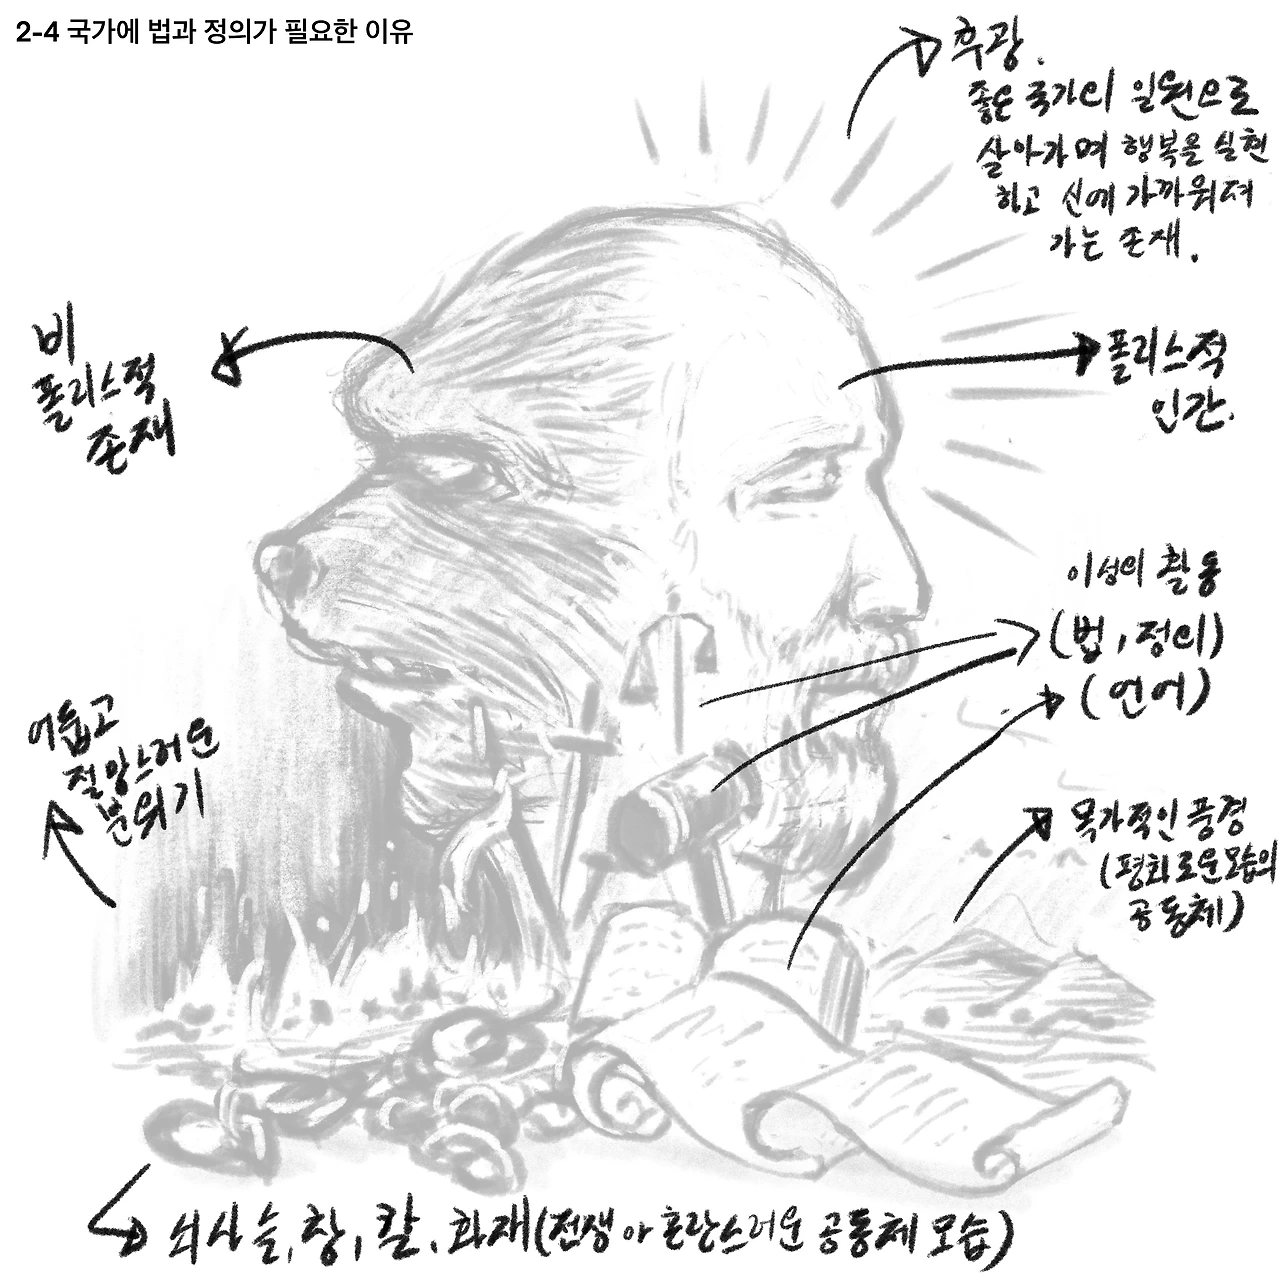 2-4 국가에 법과 정의가 필요한 이유
후광.
좋은 국가의 일원으로
살아가며 행복을 실현
하고 신에 가까워져
가는 존재.
비
폴리스적
존재
폴리스적
인간.
이성의 활동
(법, 정의)
(언어)
어둡고
절망스러운
분위기
목가적인 풍경
(평화로운 모습의
공동체)
쇠사슬, 창, 칼, 화재(전쟁 아 혼란스러운 공동체 모습)